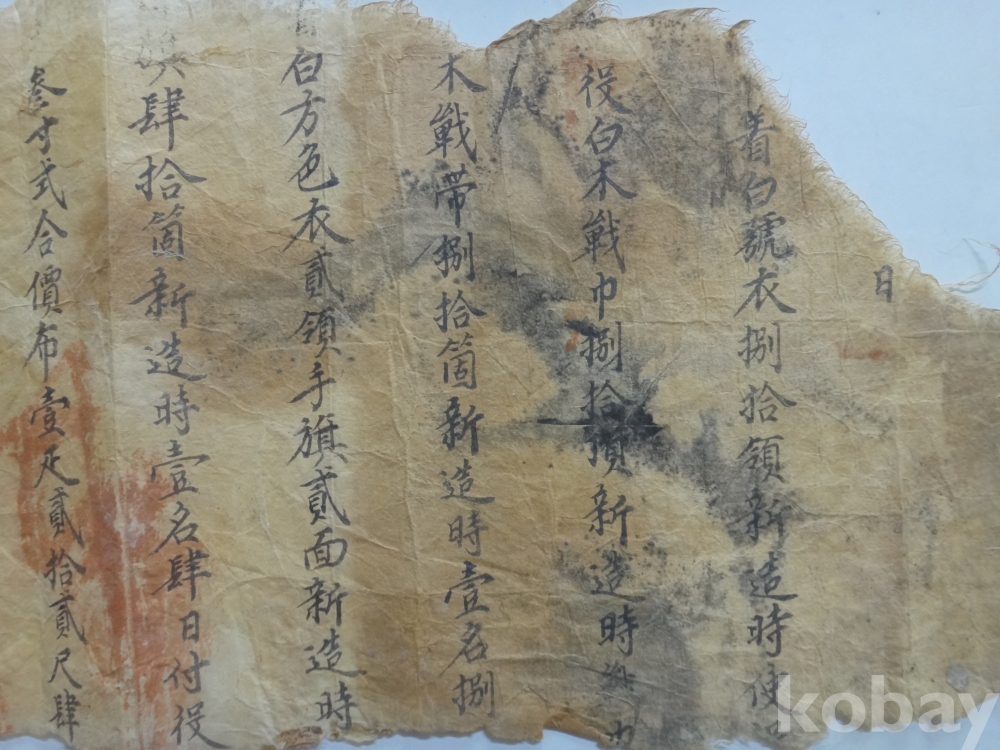 日
着白號衣捌拾領新造時使
役白木戰巾捌拾領新造時
木戰帶捌拾箇新造時壹名捌
白方色衣貳領手旗貳面新造時
肆拾箇新造時壹名肆日付役
參寸式合價布壹疋貳拾貳尺肆
kobay